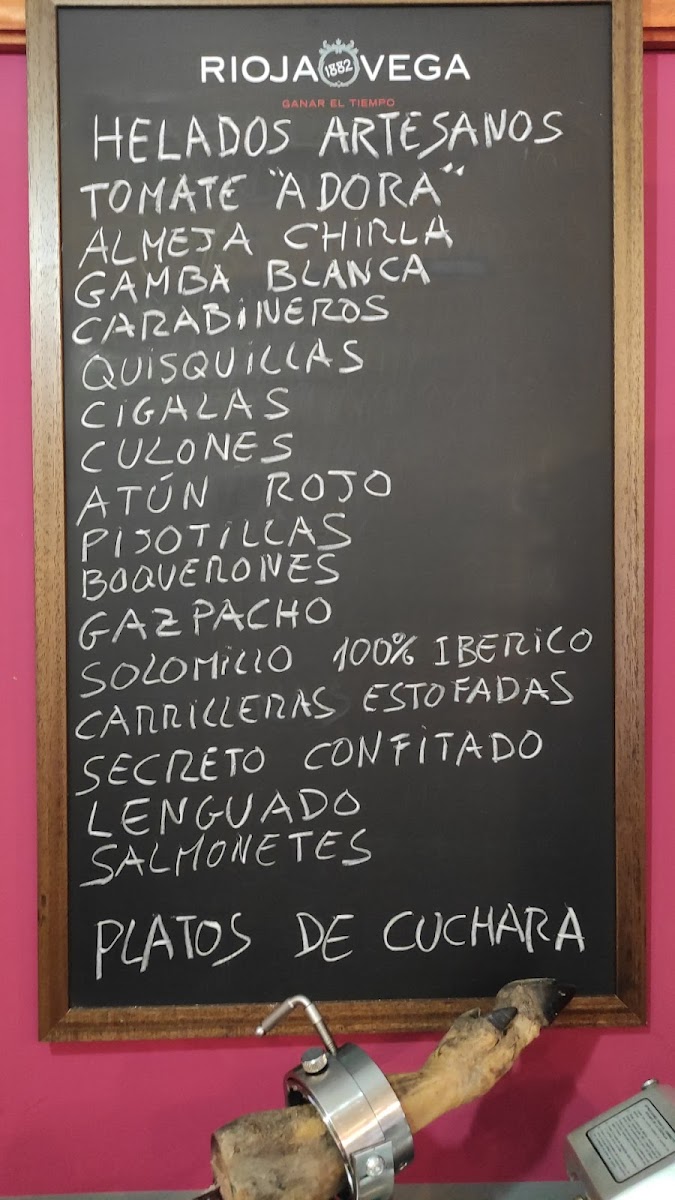 RIOJA 1882 VEGA
GANAR EL TIEMPO
HELADOS ARTESANOS
TOMATE "ADORA"
ALMEJA CHIRLA
GAMBA BLANCA
CARABINEROS
QUISQUILLAS
CIGALAS
CULONES
ATÚN ROJO
PIJOTILLAS
BOQUERONES
GAZPACHO
SOLOMILLO 100% IBERICO
CARRILLERAS ESTOFADAS
SECRETO CONFITADO
LENGUADO
SALMONETES
PLATOS DE CUCHARA